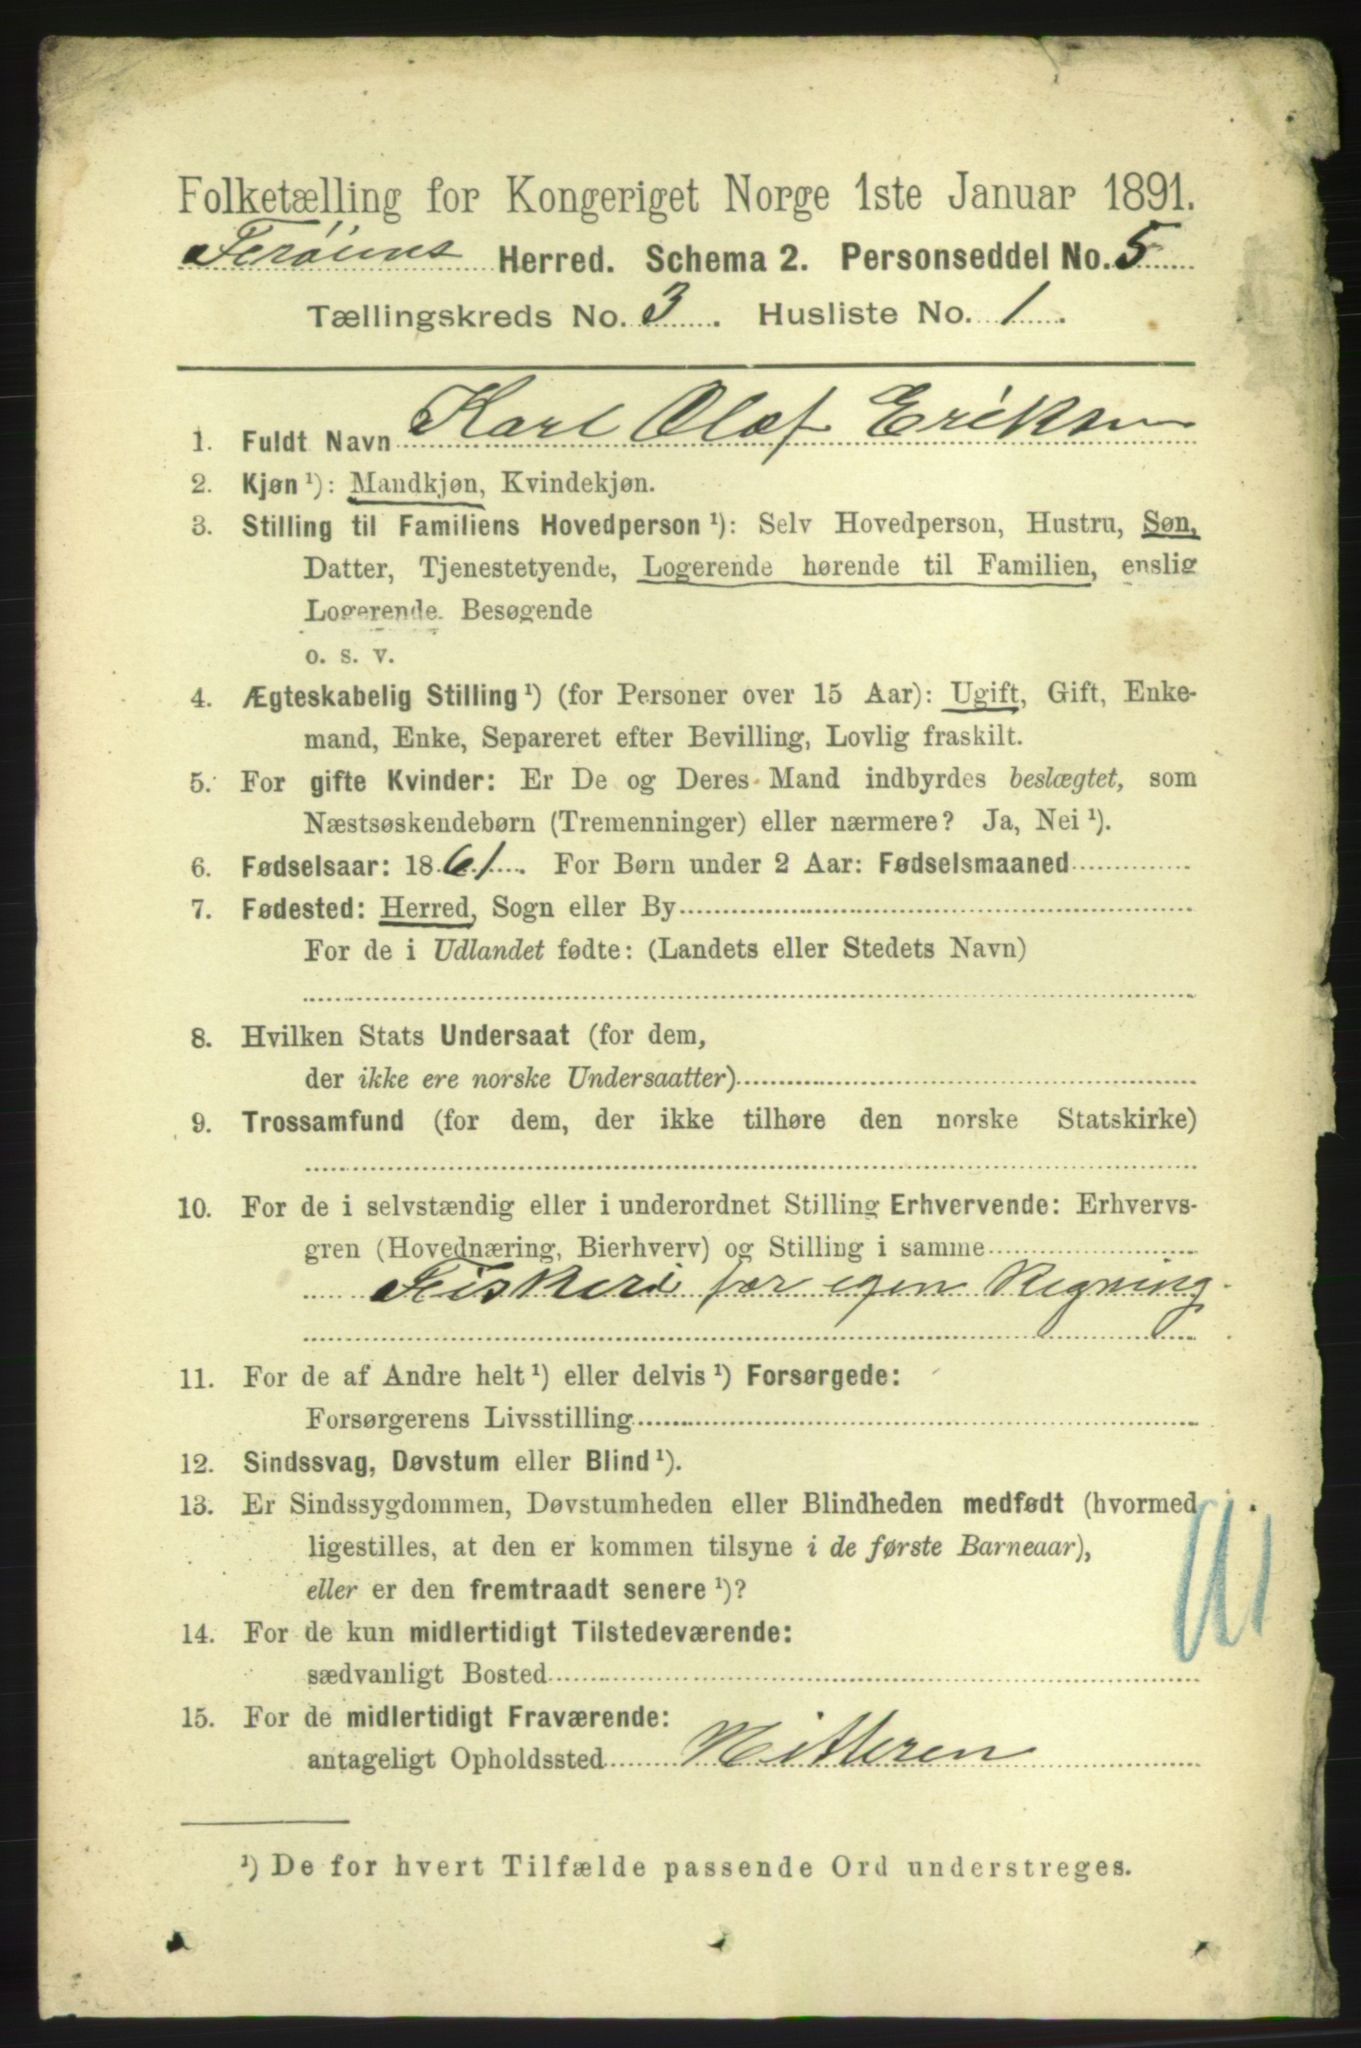 Folketælling for Kongeriget Norge 1ste Januar 1891.
Herred. Schema 2. Personseddel No. 5
Tællingskreds No. 3. Husliste No. 1.
1. Fuldt Navn Karl Olaf Eriksen
2. Kjøn ¹): Mandkjøn, Kvindekjøn.
3. Stilling til Familiens Hovedperson ¹): Selv Hovedperson, Hustru, Søn,
Datter, Tjenestetyende, Logerende hørende til Familien, enslig
Logerende. Besøgende
o. s. v.
4. Ægteskabelig Stilling ¹) (for Personer over 15 Aar): Ugift, Gift, Enke-
mand, Enke, Separeret efter Bevilling, Lovlig fraskilt.
5. For gifte Kvinder: Er De og Deres Mand indbyrdes beslægtet, som
Næstsøskendebørn (Tremenninger) eller nærmere? Ja, Nei ¹).
6. Fødselsaar: 1861. For Børn under 2 Aar: Fødselsmaaned
7. Fødested: Herred, Sogn eller By
For de i Udlandet fødte: (Landets eller Stedets Navn)
8. Hvilken Stats Undersaat (for dem,
der ikke ere norske Undersaatter)
9. Trossamfund (for dem, der ikke tilhøre den norske Statskirke)
10. For de i selvstændig eller i underordnet Stilling Erhvervende: Erhvervs-
gren (Hovednæring, Bierhverv) og Stilling i samme
Fiskeri for egen Regning.
11. For de af Andre helt ¹) eller delvis ¹) Forsørgede:
Forsørgerens Livsstilling
12. Sindssvag, Døvstum eller Blind ¹).
13. Er Sindssygdommen, Døvstumheden eller Blindheden medfødt (hvormed
ligestilles, at den er kommen tilsyne i de første Barneaar),
eller er den fremtraadt senere ¹)?
14. For de kun midlertidigt Tilstedeværende:
sædvanligt Bosted
15. For de midlertidigt Fraværende:
antageligt Opholdssted
¹) De for hvert Tilfælde passende Ord understreges.